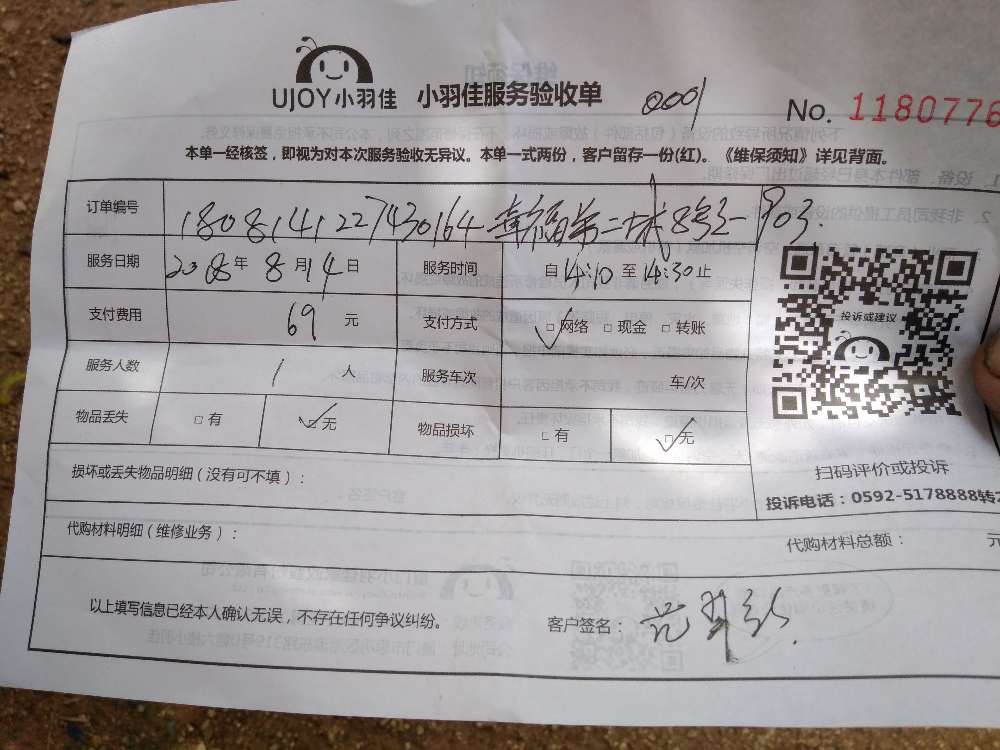 UJOY小羽佳 小羽佳服务验收单 0001 No. 1180776
本单一经核签，即视为对本次服务验收无异议。本单一式两份，客户留存一份(红)。《维保须知》详见背面。
订单编号 1808141227430164
服务日期 2018年8月14日 服务时间 自14:10至14:30止
支付费用 69 元 支付方式 □网络 □现金 □转账
投诉或建议
服务人数 1 人 服务车次 车/次
物品丢失 □有 □无 物品损坏 □有 □无
扫码评价或投诉
损坏或丢失物品明细（没有可不填）：
投诉电话：0592-5178888转2
代购材料明细（维修业务）： 代购材料总额： 元
以上填写信息已经本人确认无误，不存在任何争议纠纷。 客户签名：